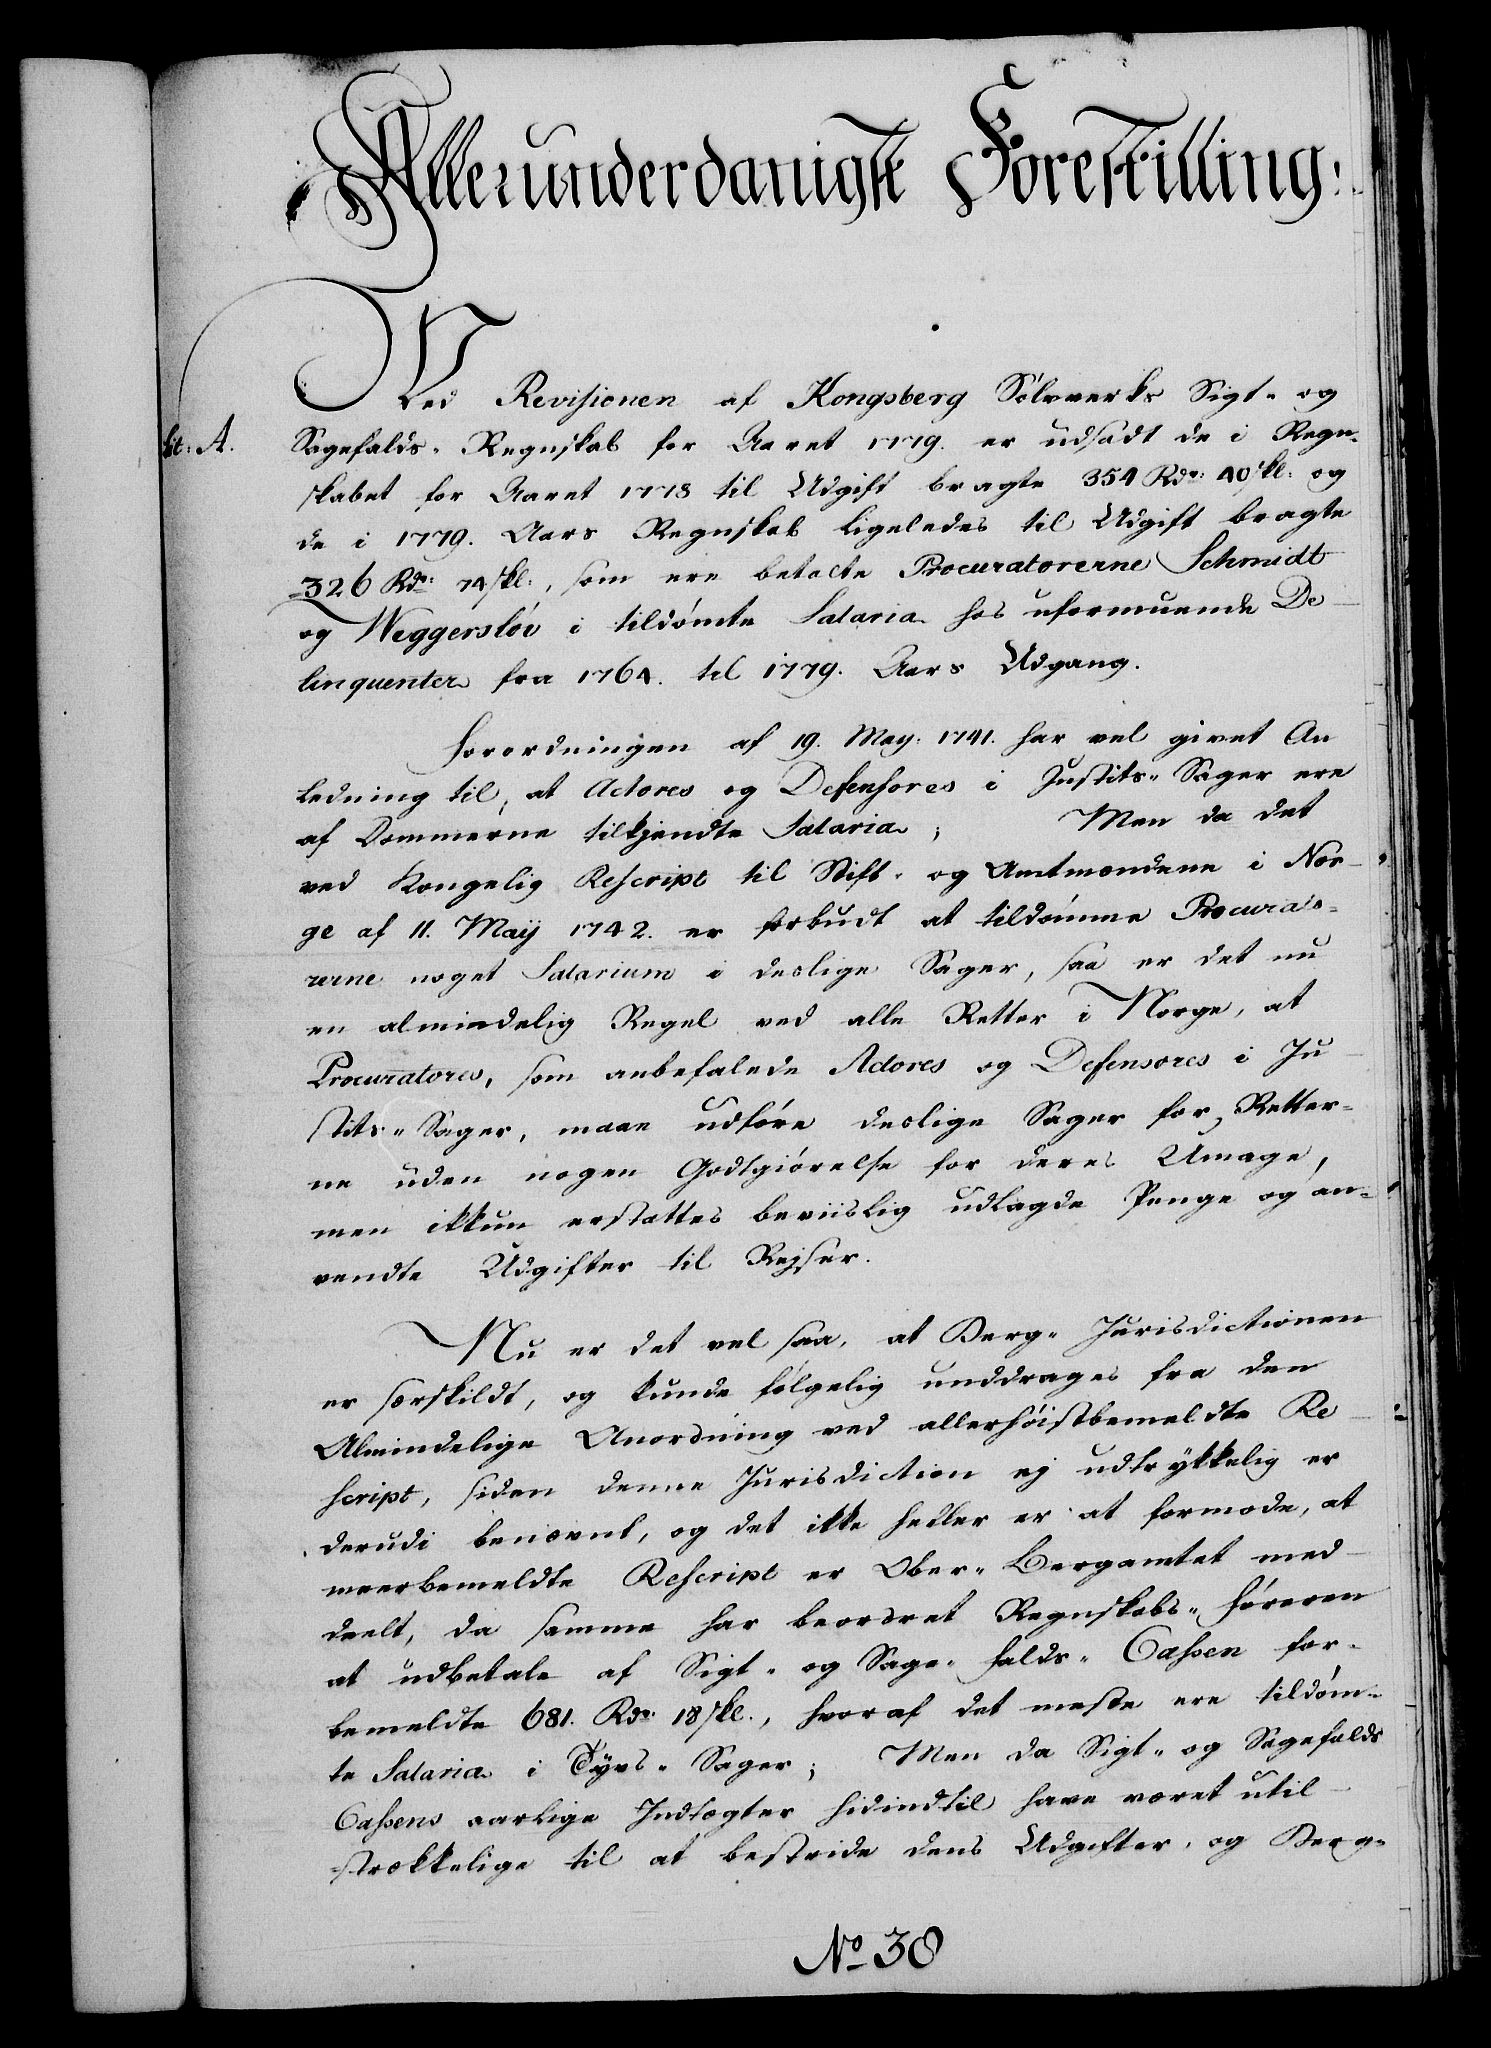 Allerunderdanigst Forestilling:
Ved Revisionen af Kongsberg Sølvverks Sigt- og
Lit: A. Sagefalds-Regnskab for Aaret 1779. er udsadt de i Regn-
skabet for Aaret 1778 til Udgift bragte 354 Rdr: 40 skl: og
de i 1779. Aars Regnskab ligeledes til Udgift bragte
326 Rdr: 74 skl:, som ere betalte Procuratorerne Schmidt
og Weggersløv i tildømte Salaria hos uformuende De-
linquenter fra 1764. til 1779. Aars Udgang.
Forordningen af 19. May. 1741. har vel givet An
ledning til, at Actores og Defensores i Justits-Sager ere
af Dommerne tilkjendte Salaria; Men da det
ved Kongelig Rescript til Stift- og Amtmændene i Nor-
ge af 11. Maij 1742. er forbudt at tildømme Procurato-
rerne noget Salarium i deslige Sager, saa er det nu
en almindelig Regel ved alle Retter i Norge, at
Procuratores, som anbefalede Actores og Defensores i Ju-
stits-Sager, maae udføre deslige Sager for Retter-
ne uden nogen Godtgiørelse for deres Umage,
men ikkun erstattes beviislig udlagde Penge og an-
vendte Udgifter til Rejser.
Nu er det vel saa, at Berg-Jurisdictionen
er særskildt, og kunde følgelig unddrages fra den
Almindelige Anordning ved allerhøistbemeldte Re-
script, siden denne Jurisdiction ej udtrykkelig er
derudi benævnt, og det ikke heller er at formode, at
meerbemeldte Rescript er Ober-Bergamtet med-
deelt, da samme har beordret Regnskabs-føreren
at udbetale af Sigt- og Sage-falds-Cassen for-
bemeldte 681. Rdr. 18 skl., hvoraf det meste ere tildøm-
te Salaria i Tyvs-Sager; Men da Sigt- og Sagefalds
Cassens aarlige Indtægter hidindtil have været util-
strækkelige til at bestride dens Udgifter, og Berg-
No 38